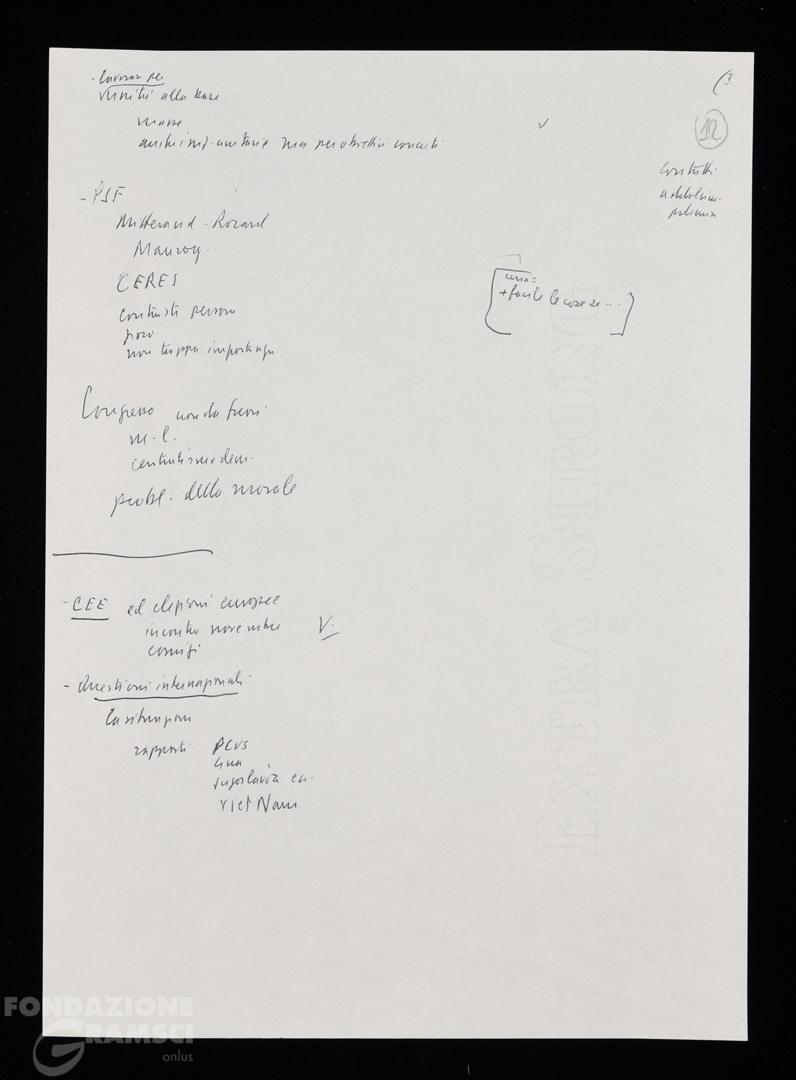 - lavorare per
l'unità alla base
masse
anche iniz. unitarie ma per obiettivi concreti
(3
12
contatti
- PSF
Mitterand - Rocard
Mauroy
CERES
contrasti persone
poco
non troppa importanza
una =
+ facile le cose se ...
Congresso
m. l.
centralismo dem.
probl. della morale
- CEE ed elezioni europee
incontro novembre V.
comizi
- Questioni internazionali
La situazione
rapporti PCUS
Cina
Jugoslavia ecc.
Viet Nam
EXTRA STRONG
FONDAZIONE
GRAMSCI
onlus